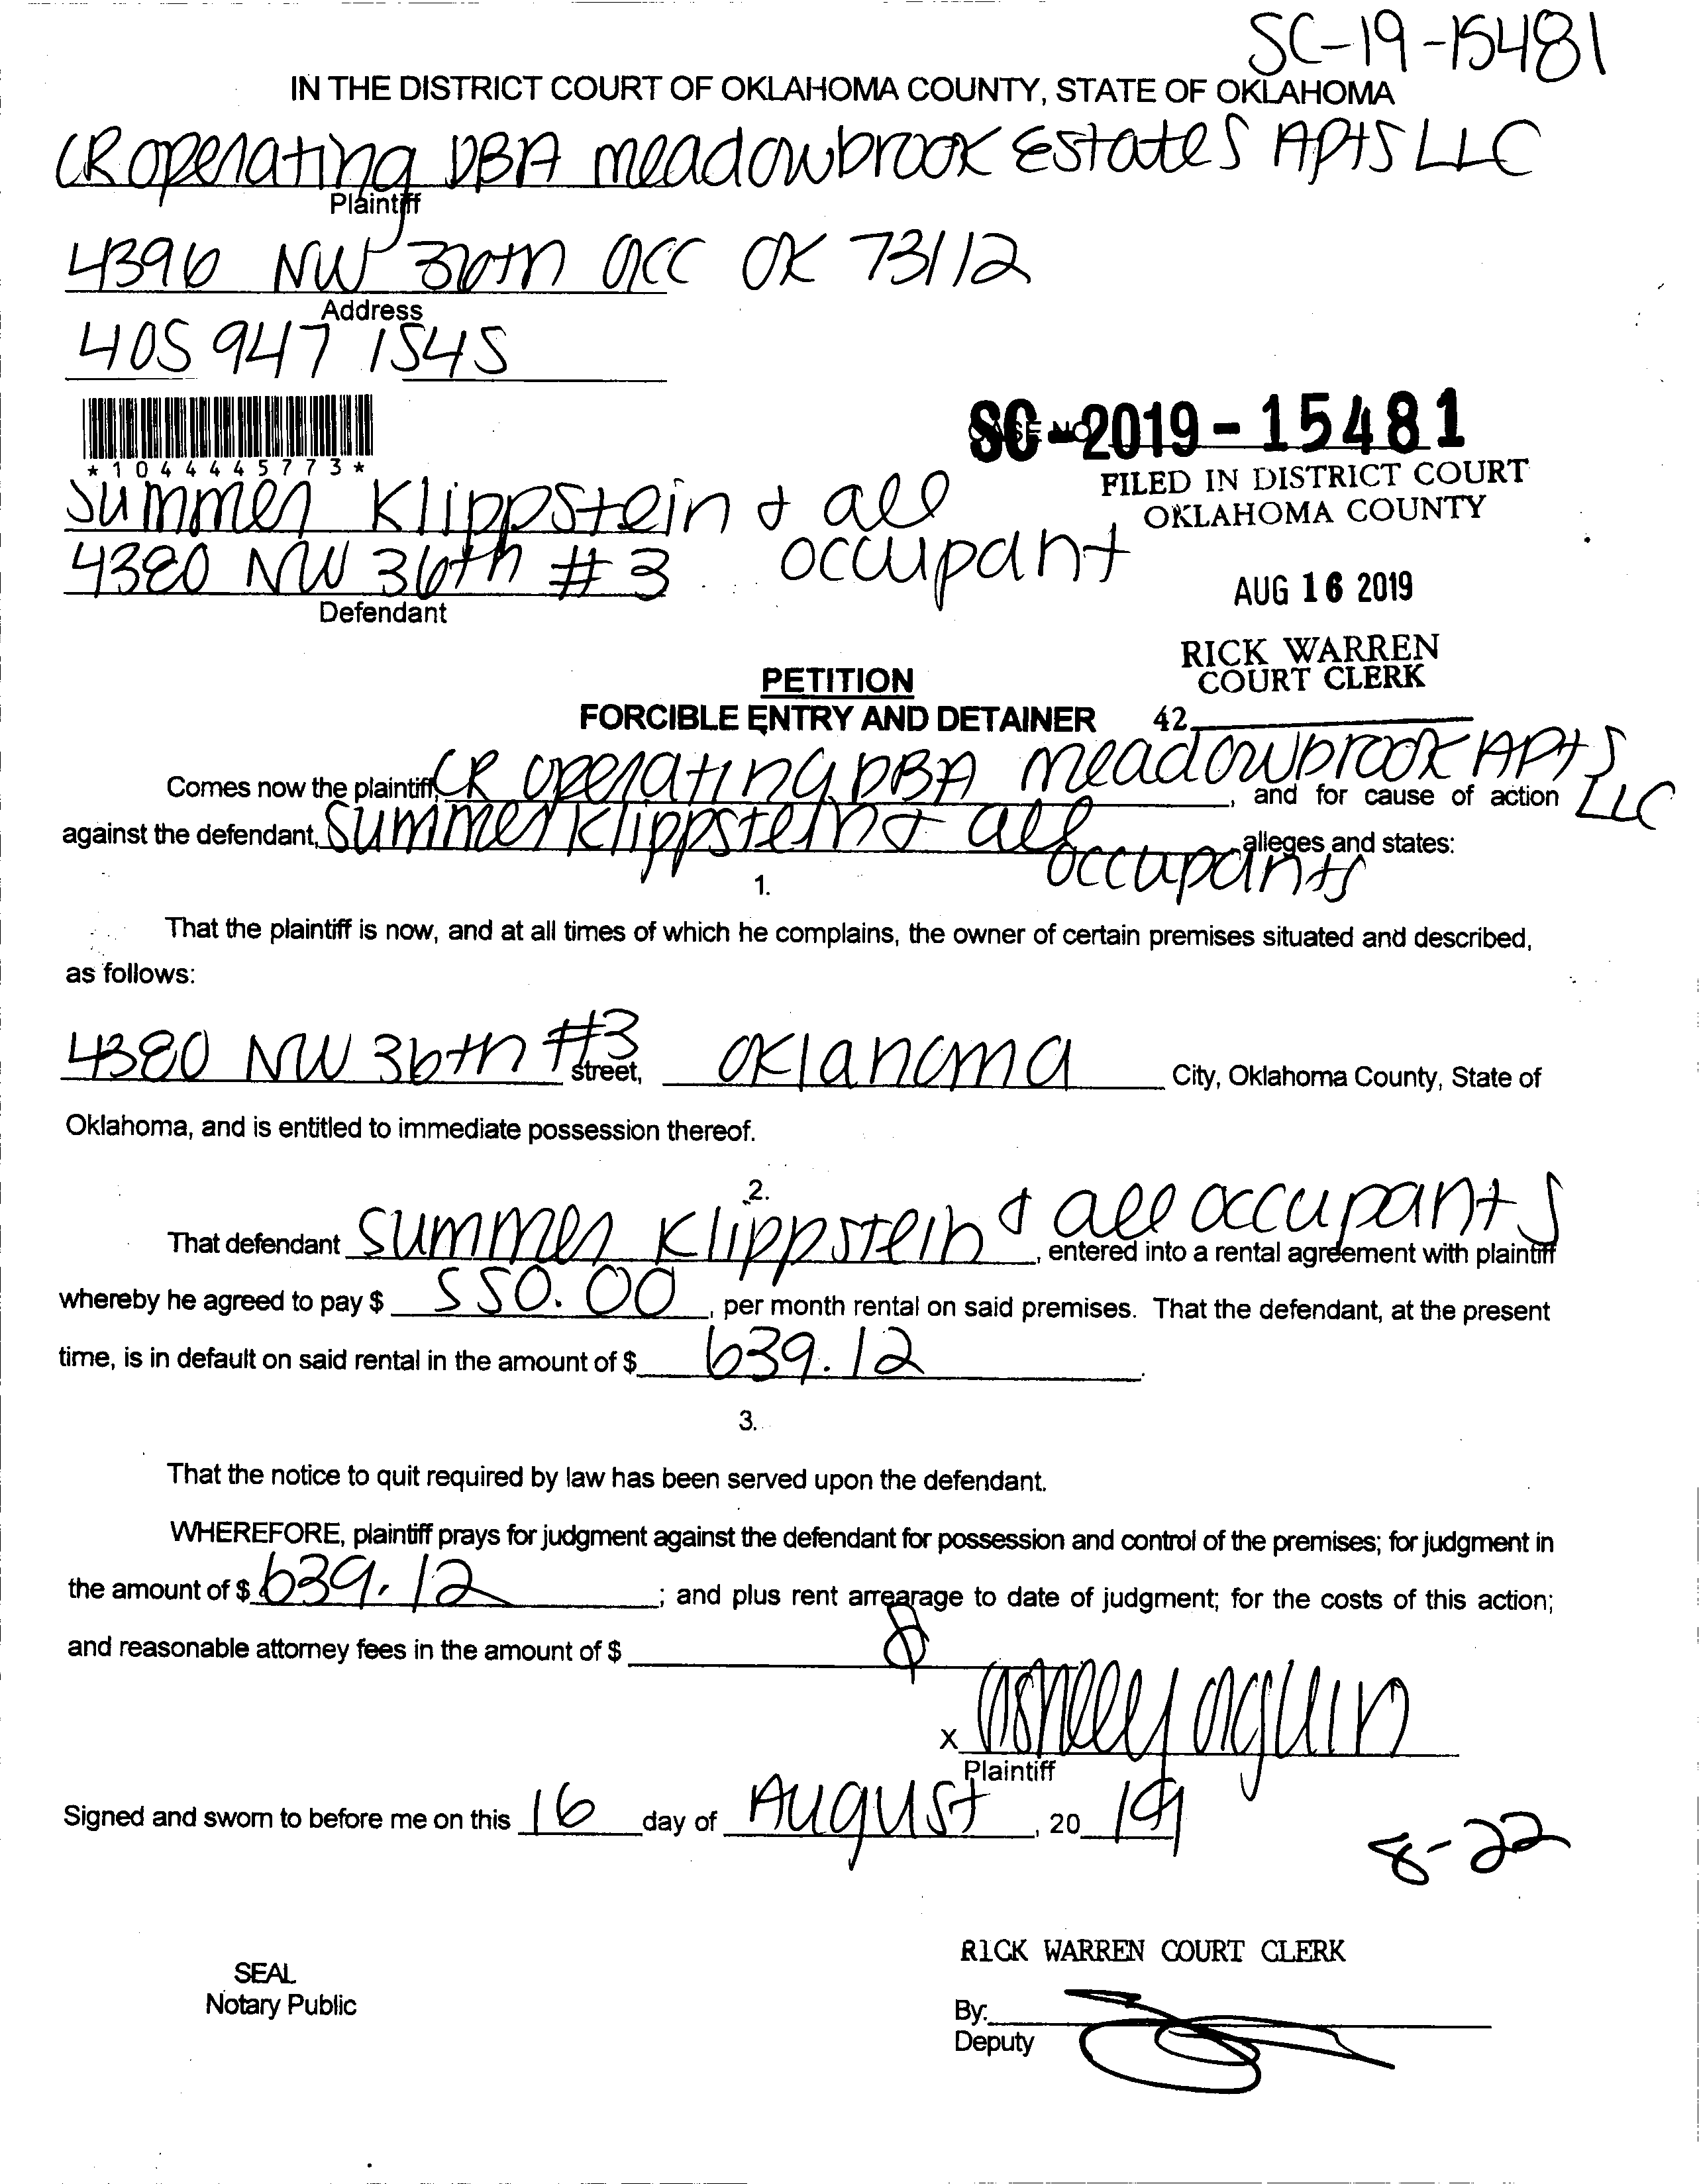 SC-19-15481
IN THE DISTRICT COURT OF OKLAHOMA COUNTY, STATE OF OKLAHOMA
CR operating DBA meadowbrook Estates APtS LLC
Plaintiff
4396 NW 36th OCC OK 73112
Address
405 947 1545
*1044445773*
SC-2019-15481
CASE NO.
FILED IN DISTRICT COURT
OKLAHOMA COUNTY
Summer Klippstein & all
occupant
4380 NW 36th #3
Defendant
AUG 16 2019
RICK WARREN
COURT CLERK
PETITION
FORCIBLE ENTRY AND DETAINER
42
Comes now the plaintiff, CR operating DBA meadowbrook APtS LLC, and for cause of action
against the defendant, Summer Klippstein & all occupants alleges and states:
1.
That the plaintiff is now, and at all times of which he complains, the owner of certain premises situated and described,
as follows:
4380 NW 36th #3 street, oklahoma City, Oklahoma County, State of
Oklahoma, and is entitled to immediate possession thereof.
2.
That defendant Summer Klippstein & all occupants, entered into a rental agreement with plaintiff
whereby he agreed to pay $ 550.00, per month rental on said premises. That the defendant, at the present
time, is in default on said rental in the amount of $ 639.12.
3.
That the notice to quit required by law has been served upon the defendant.
WHEREFORE, plaintiff prays for judgment against the defendant for possession and control of the premises; for judgment in
the amount of $ 639.12; and plus rent arrearage to date of judgment; for the costs of this action;
and reasonable attorney fees in the amount of $
x Ashley
Plaintiff
Signed and sworn to before me on this 16 day of August, 20 19
8-22
RICK WARREN COURT CLERK
SEAL
Notary Public
By:
Deputy